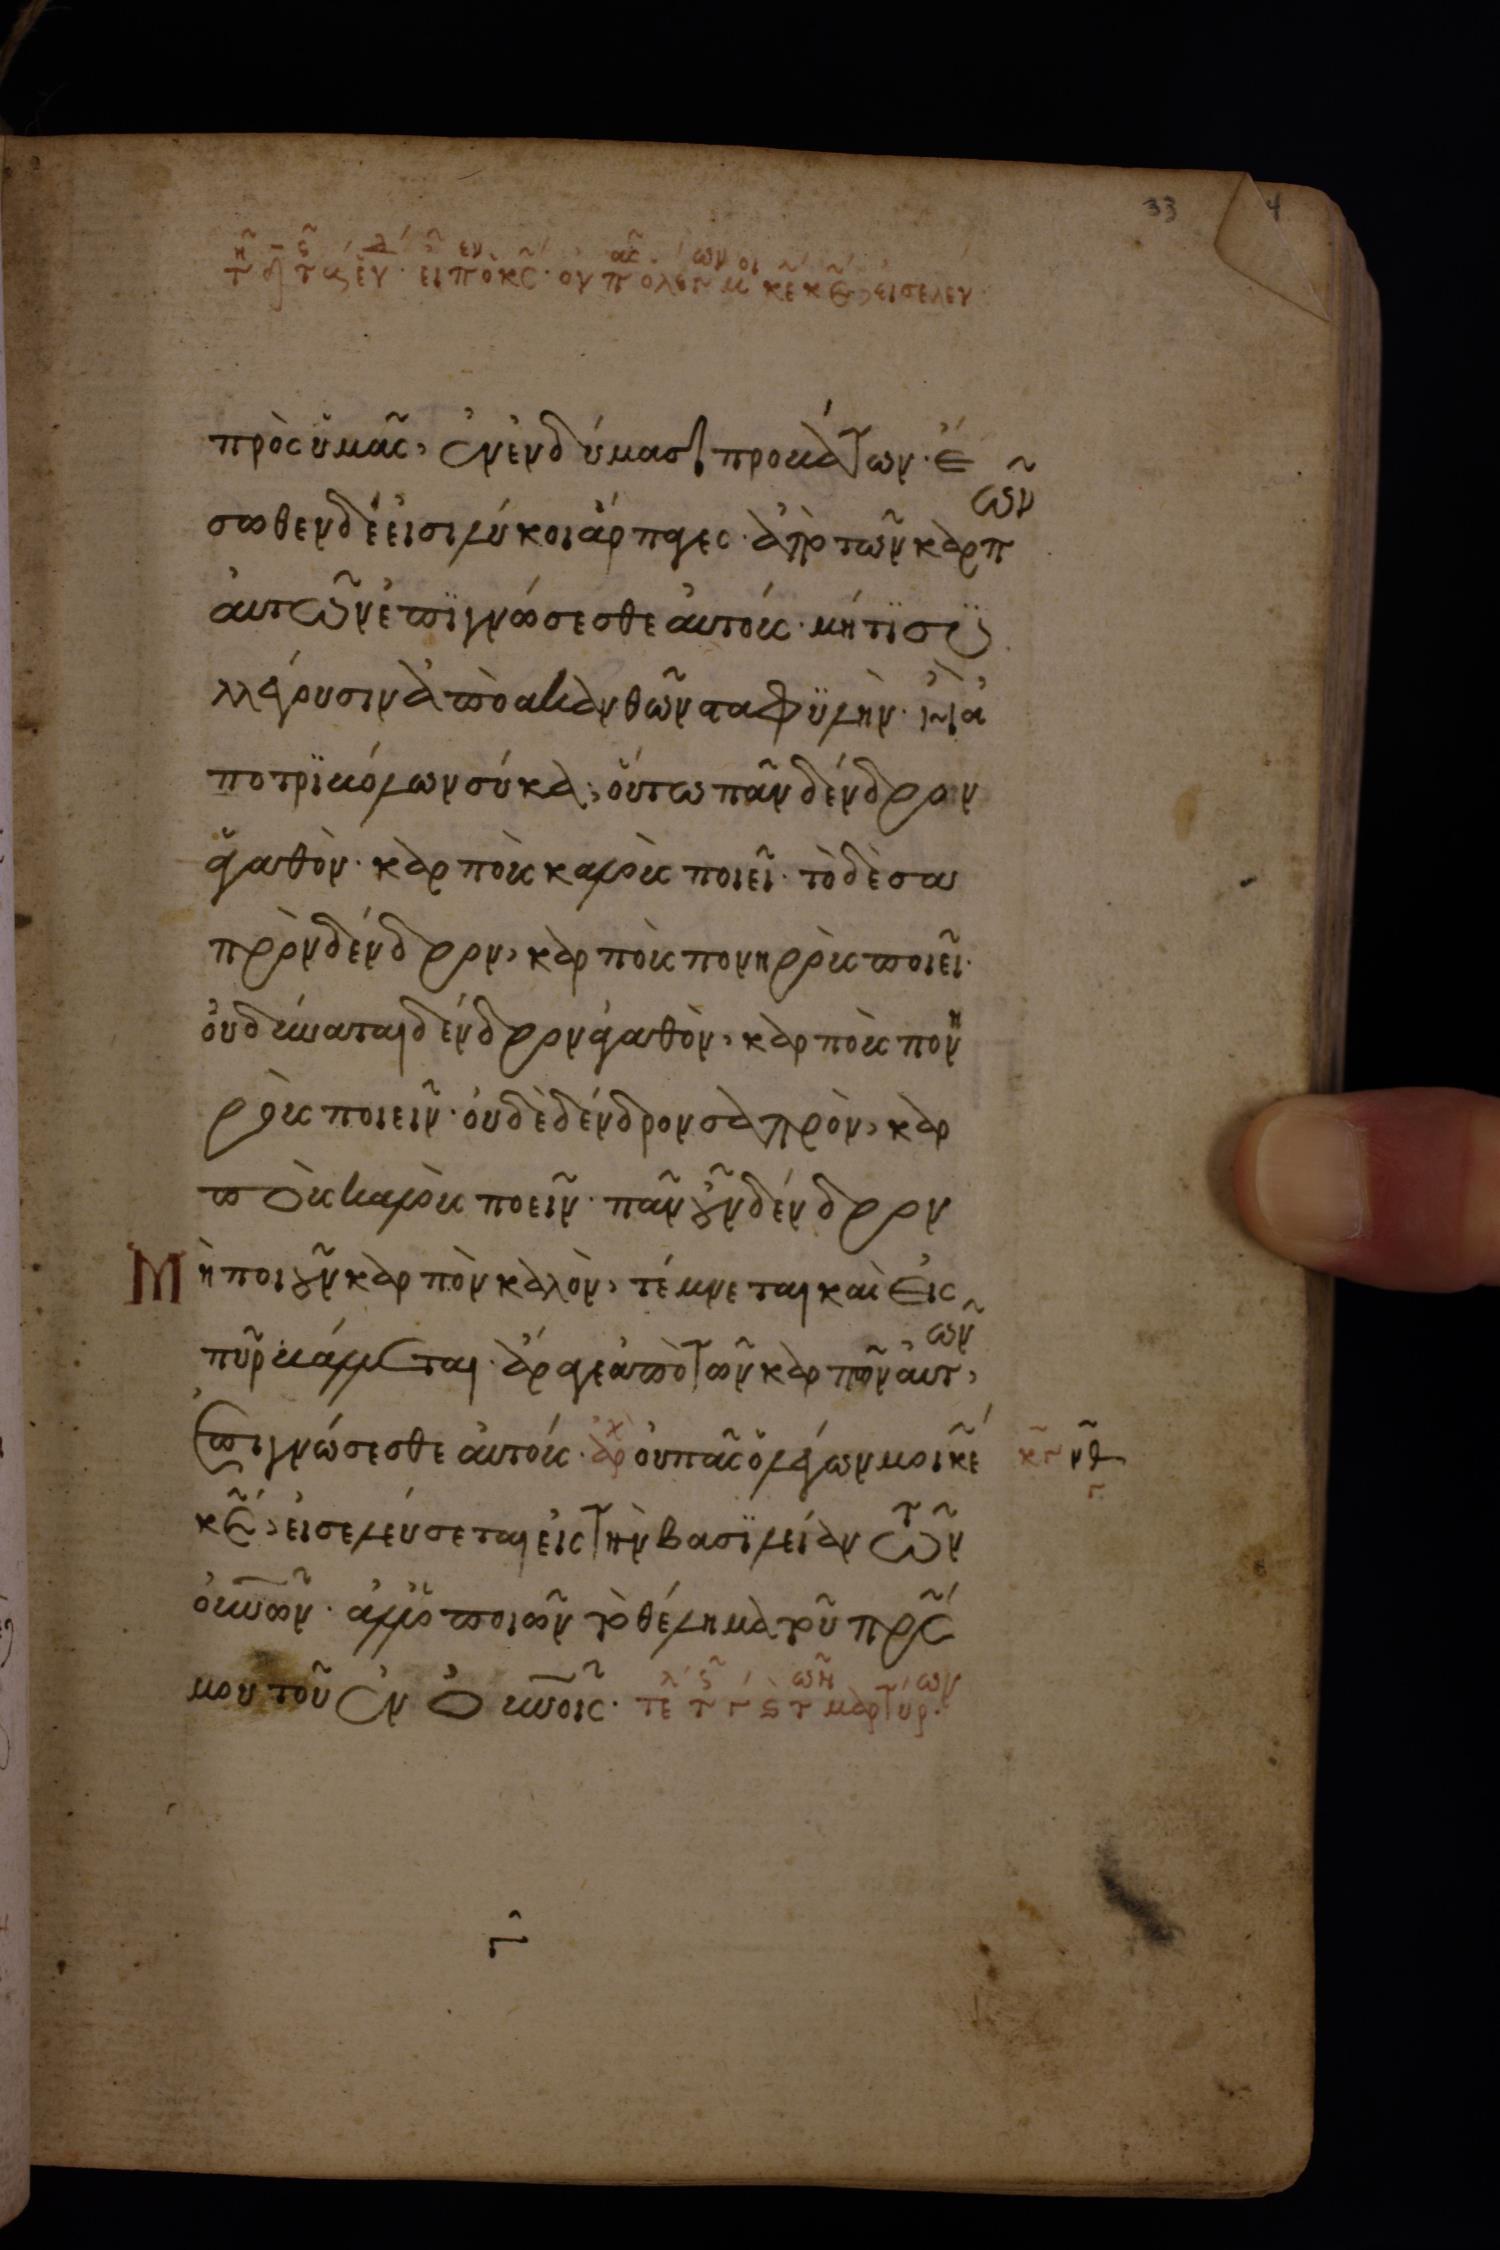 πρὸς ὑμᾶς, ἐν ἐνδύμασι προβάτων· ἔ
σωθεν δέ εἰσι λύκοι ἅρπαγες· ἀπὸ τῶν καρπῶν
αὐτῶν ἐπϊγνώσεσθε αὐτούς· μήτϊ συ
λλέγουσιν ἀπὸ ακανθῶν σταφϋλὴν· ἢ ἀ
πὸ τρϊβόλων σύκα; οὕτω πᾶν δένδρον
ἀγαθὸν· καρποὺς καλοὺς ποιεῖ· τὸ δὲ σα
πρὸν δένδρον, καρποὺς πονηροὺς ποιεῖ·
οὐ δύναται δένδρον ἀγαθὸν, καρποὺς πονη
ροὺς ποιεῖν· οὐδὲ δένδρον σαπρὸν, καρ
ποὺς καλοὺς ποιεῖν· πᾶν οὖν δένδρον
Μὴ ποιοῦν καρπὸν καλὸν, τέμνεται καὶ εἰς
πῦρ βάλλεται· ἄραγε ἀπὸ τῶν καρπῶν αὐτῶν,
ἐπιγνώσεσθε αὐτούς· ἀρχ οὐ πᾶς ὁ λέγων μοι κε
κε, εἰσελεύσεται εἰς τὴν βασϊλείαν τῶν
οὐνῶν· ἀλλ' ὁ ποιῶν τὸ θέλημα τοῦ πρς
μου τοῦ ἐν οὐνοῖς·